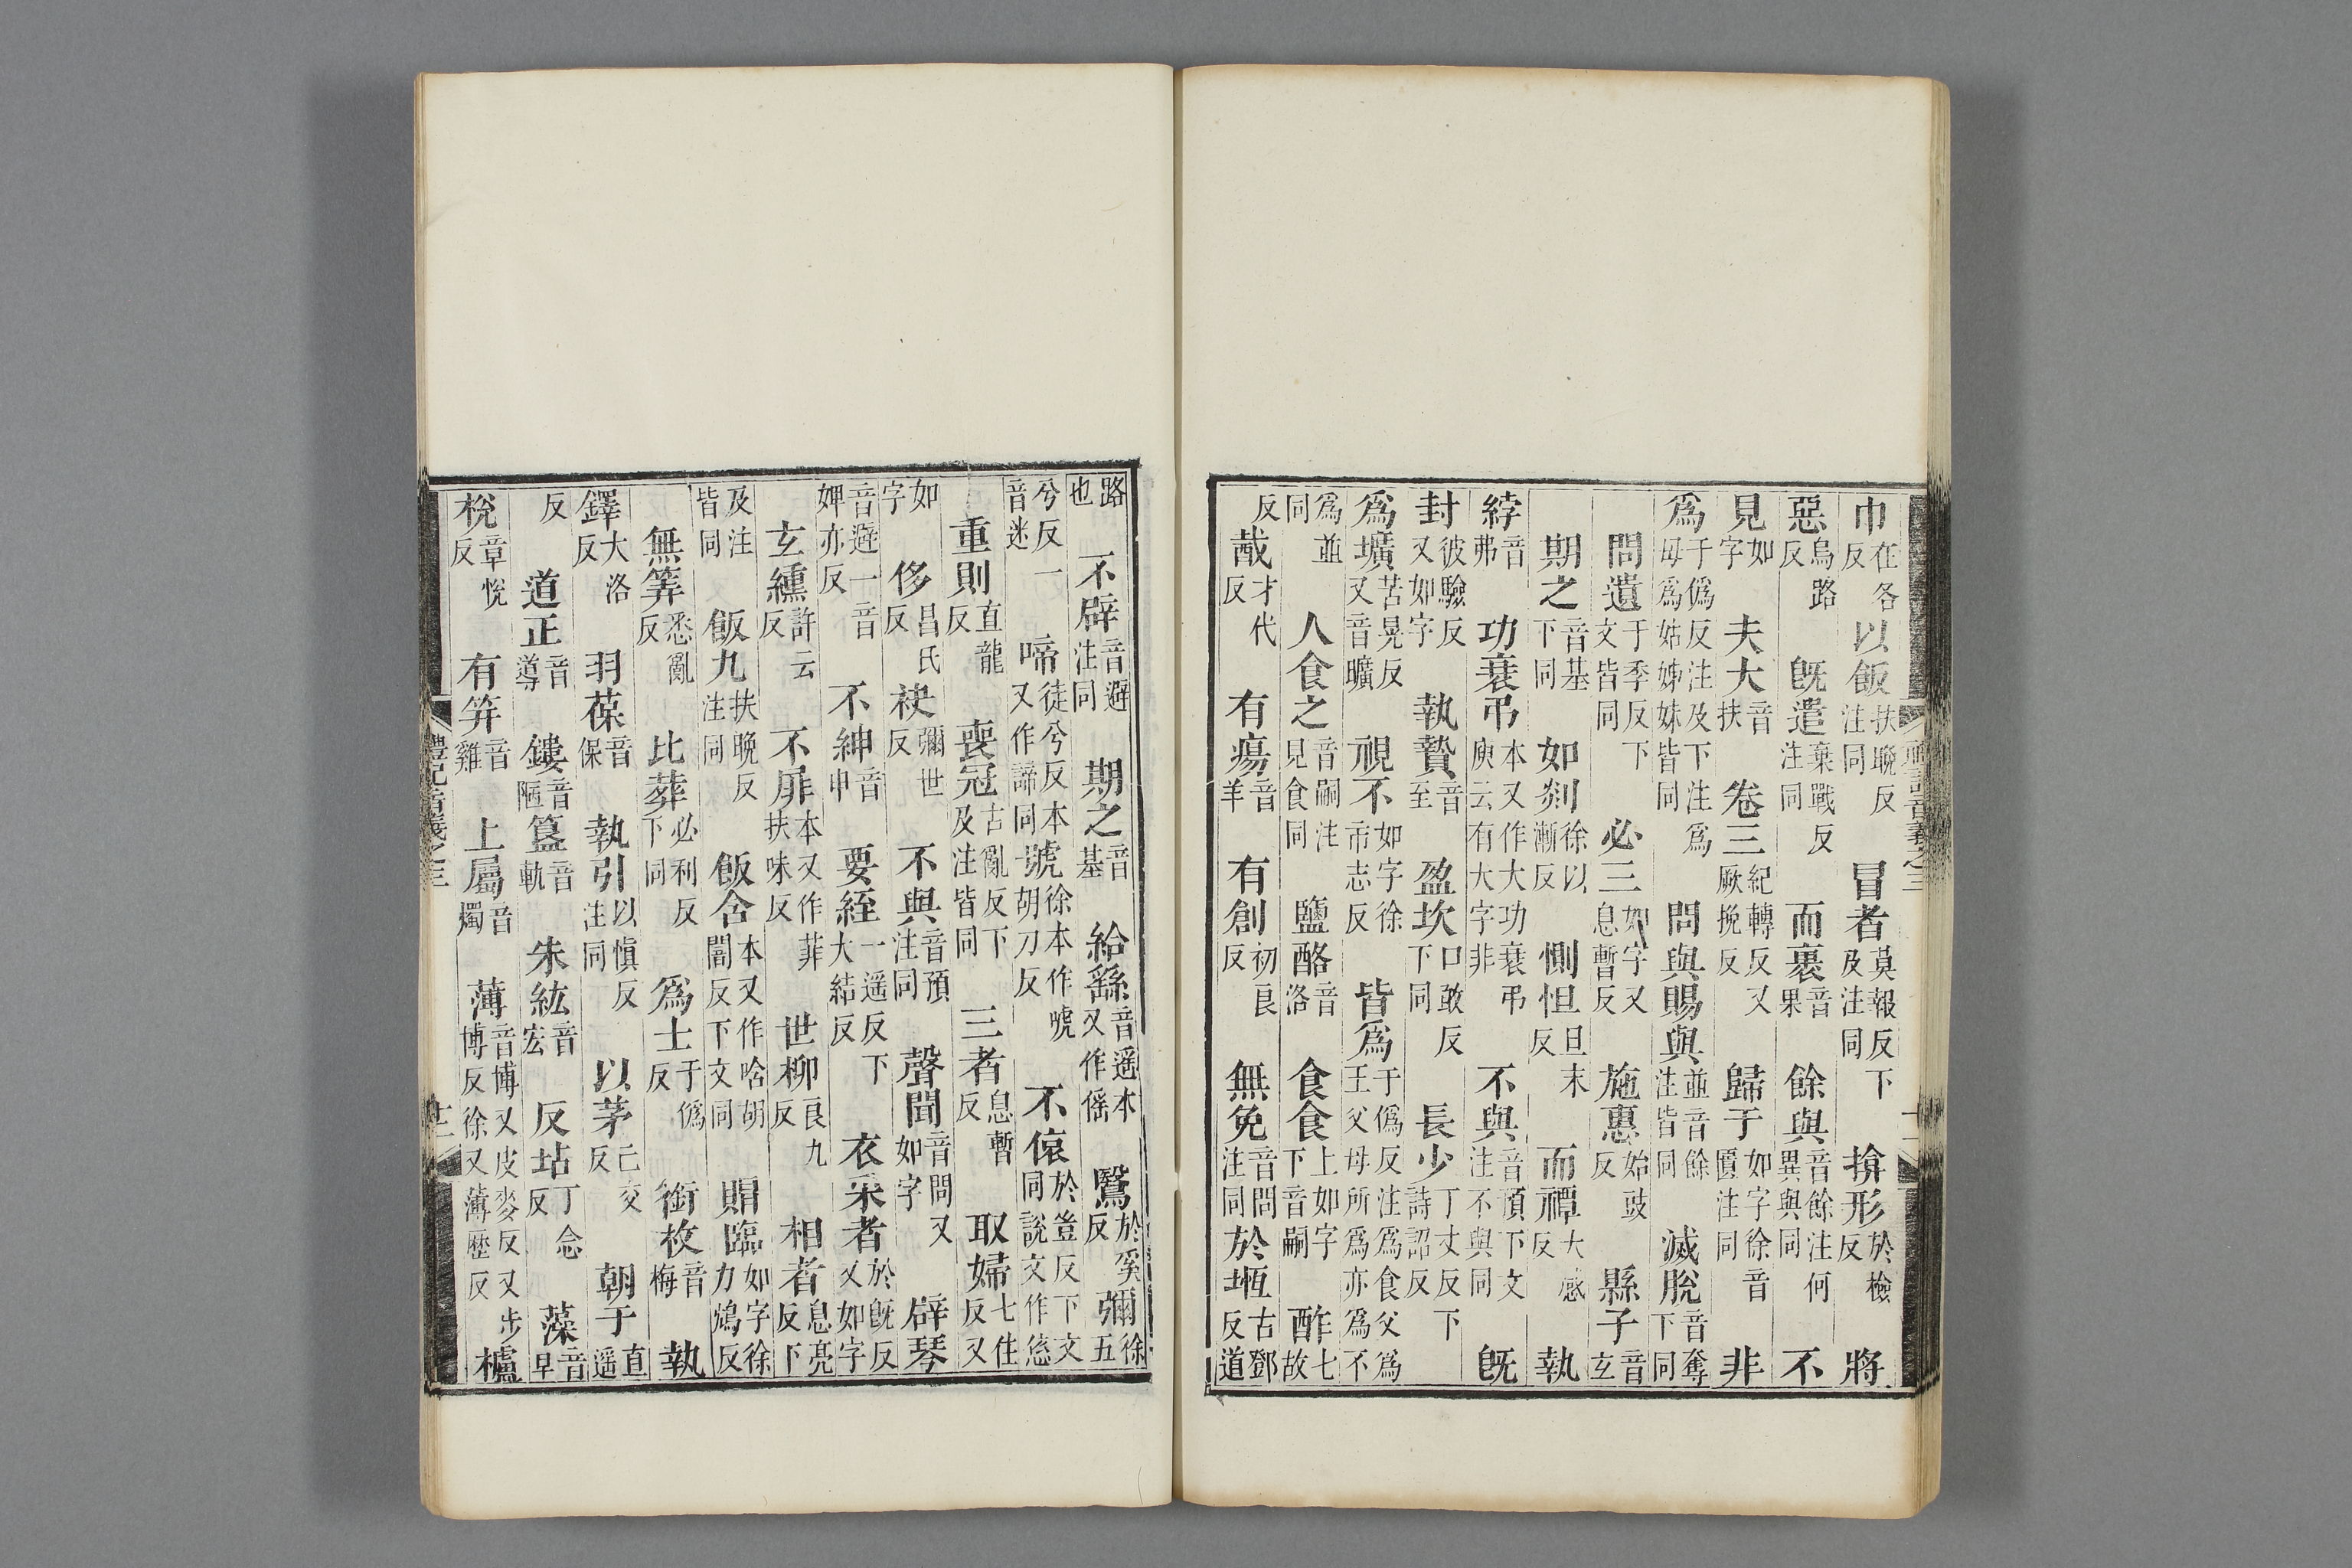 巾在各反以飯扶晚反注同冒者莫報反下及注同揜形於檢反將
惡烏路反旣遣棄戰反注同而裹音果餘與音餘注何異與同不
見如字夫大音扶卷三紀轉反又厥挽反歸于如字徐音匱注同非
爲于僞反注及下注爲母爲姑姊妹皆同問與賜與並音餘注皆同滅脫音奪下同
問遺于季反下文皆同必三如字又息暫反施惠始豉反縣子音玄
期之音基下同如剡徐以漸反惻怛旦末反而禫大感反執
綍音弗功衰弔本又作大功衰弔庾云有大字非不與音預下文注不與同旣
封彼驗反又如字執贄音至盈坎口敢反下同長少丁丈反下詩詔反
爲壙苦晃反又音曠視不如字徐市志反皆爲于僞反注爲食父爲王父母所爲亦爲不
爲並同人食之音嗣注見食同鹽酪音洛食食上如字下音嗣酢七故
反截才代反有瘍音羊有創初良反無免音問注同於堩古鄧反道
路也不辟音避注同期之音基給繇音遥本又作傜鷖於奚反彌徐五
兮反一音迷啼徒兮反本又作諦同號徐本作唬胡刀反不偯於豈反下文同說文作㥋
重則直龍反喪冠古亂反下及注皆同三者息暫反取婦七住反又
如字侈昌氏反袂彌世反不與音預注同聲聞音問又如字辟琴
音避一音婢亦反不紳音申要絰一遥反下大結反衣采者於旣反又如字
玄纁許云反不扉本又作菲扶味反世柳良九反相者息亮反下
及注皆同飯九扶晚反注同飯含本又作唅胡闇反下文同賵臨如字徐力鴆反
無筭悉亂反比葬必利反下同爲士于僞反銜枚音梅執
鐸大洛反羽葆音保執引以愼反注同以茅亡交反朝于直遥
反道正音導鏤音陋簋音軌朱紘音宏反坫丁念反藻音早
梲章悅反有笄音雞上屬音燭薄音博又皮麥反又步博反徐又薄歷反櫨
禮記音義之三